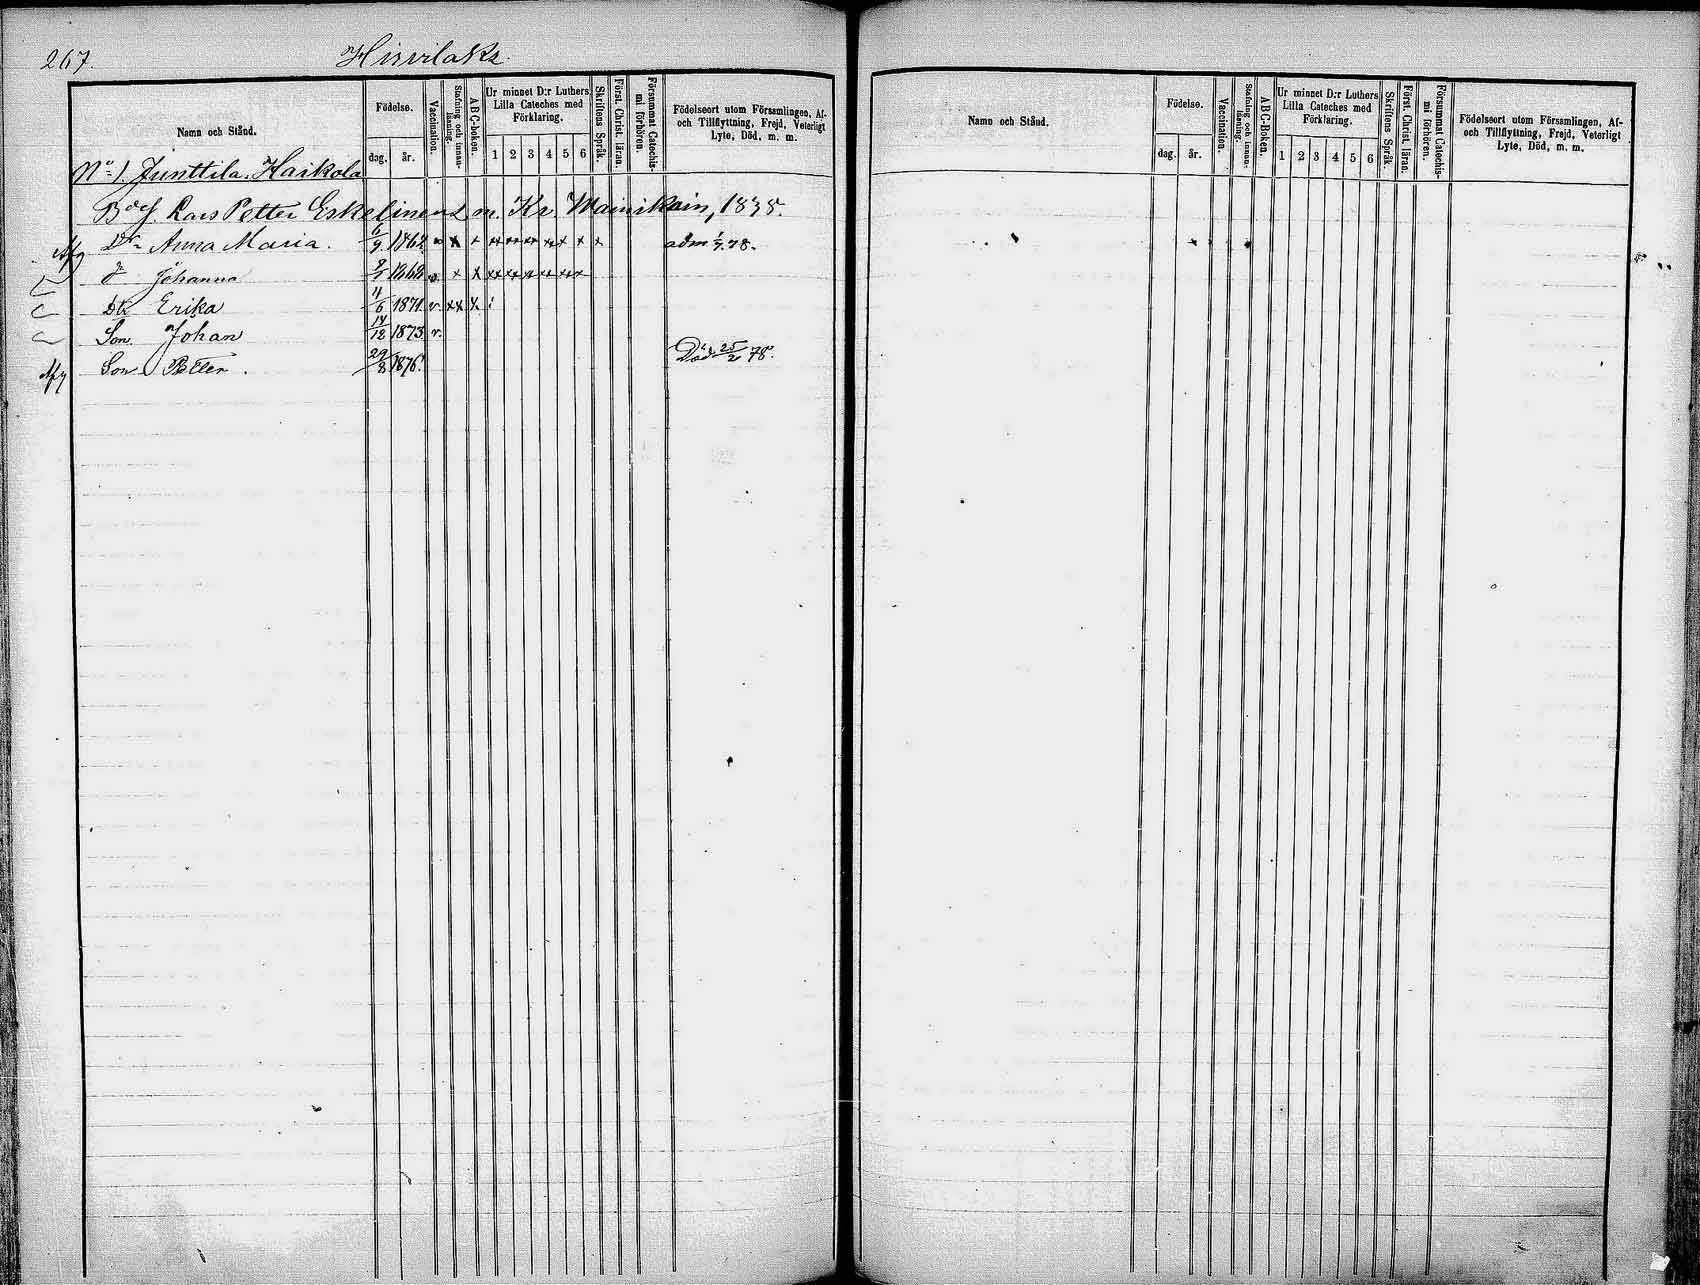 267.
Hirvilaks.
Namn och Stånd.
Födelse.
dag.
år.
Vaccination.
Stafning och innan-läsning.
ABC-boken.
Ur minnet D:r Luthers Lilla Cateches med Förklaring.
1 2 3 4 5 6
Skriftens Språk.
Först. Christ. läran.
Försummat Catechis-mi förhören.
Födelseort utom Församlingen, Af- och Tillflyttning, Frejd, Veterligt Lyte, Död, m. m.
Nº 1. Junttila. Haikola
Lars Petter Eskelinens m. Kr. Wainikain, 1838.
Dr Anna Maria. 6/9 1862 v x x x x x x x x x adm 78.
d Johanna 1868 v x x x x x x x x
Dtr Erika 4/6 1871. v. x x x
Son Johan 14/12 1873. v.
Son Petter. 29/8 1876. Död 25/2 78.
Namn och Stånd.
Födelse.
dag.
år.
Vaccination.
Stafning och innan-läsning.
ABC-Boken.
Ur minnet D:r Luthers Lilla Cateches med Förklaring.
1 2 3 4 5 6
Skriftens Språk.
Först. Christ. läran.
Försummat Catechis-mi förhören.
Födelseort utom Församlingen, Af- och Tillflyttning, Frejd, Veterligt Lyte, Död, m. m.